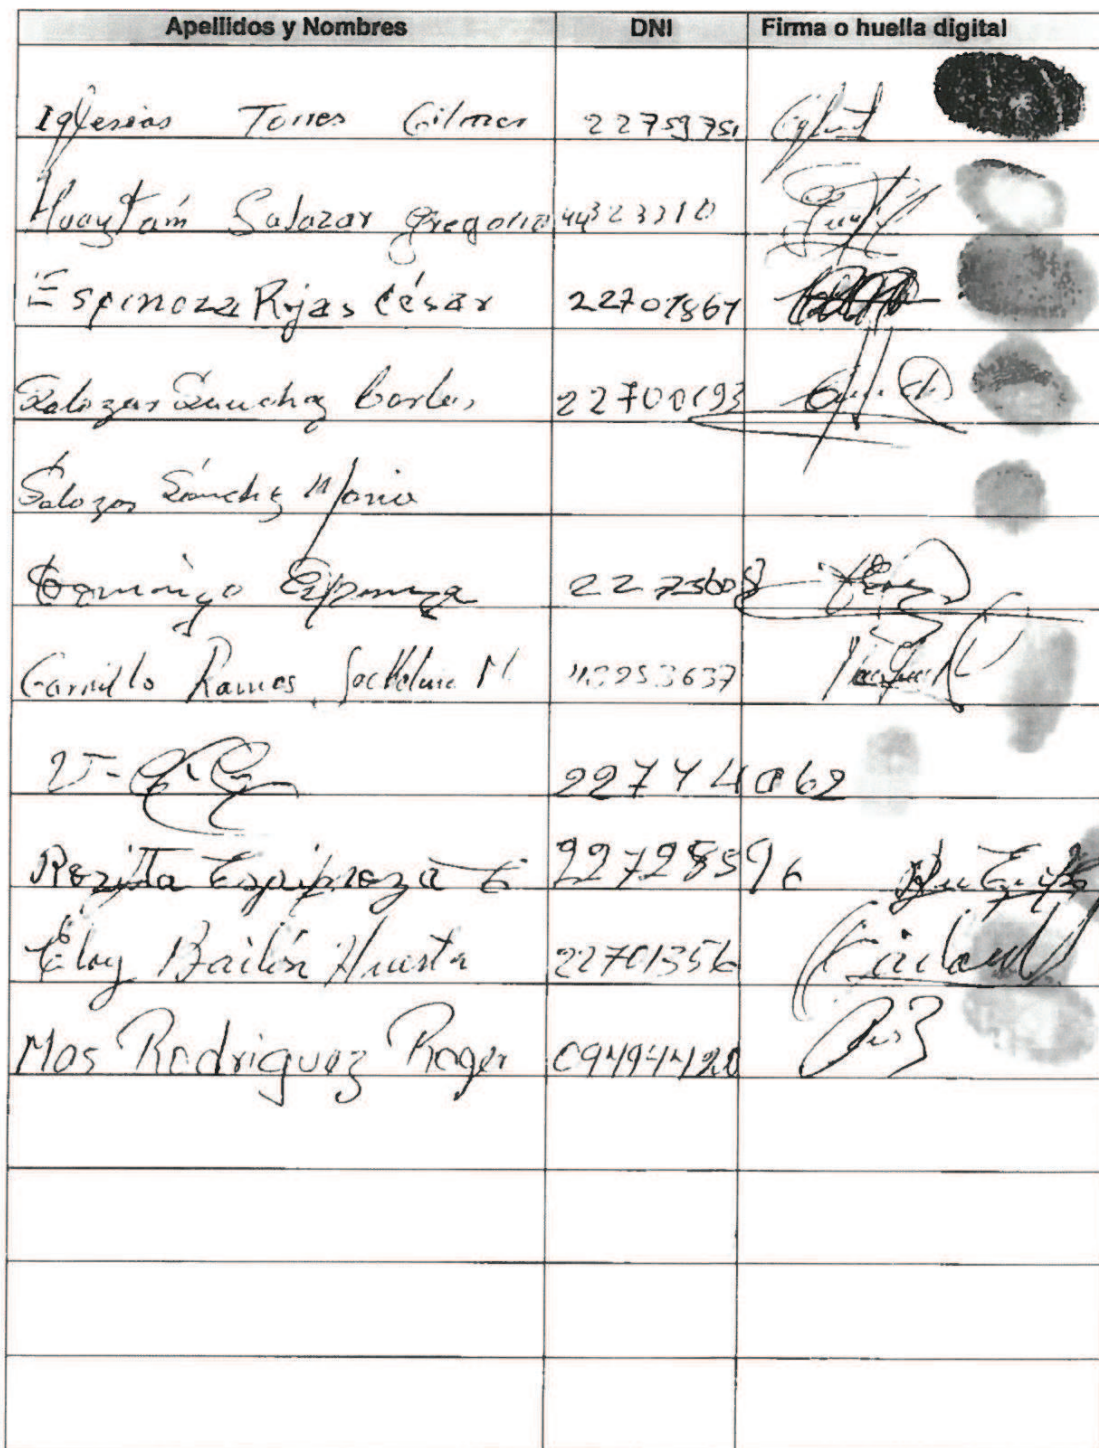 Apellidos y Nombres DNI Firma o huella digital
Iglesias Torres Gilmer 22759751
Huaytán Salazar Gregorio 44323310
Espinoza Rojas César 22701867
Salazar Sanchez Carlos 22700193
Salazar Sánchez Maria
Domingo Espinoza 22725608
Carrillo Ramos 43253637
22774062
Rozitta Espipnoza E 22728596
Eloy Bailón Huerta 22701356
Mos Rodriguez Roger